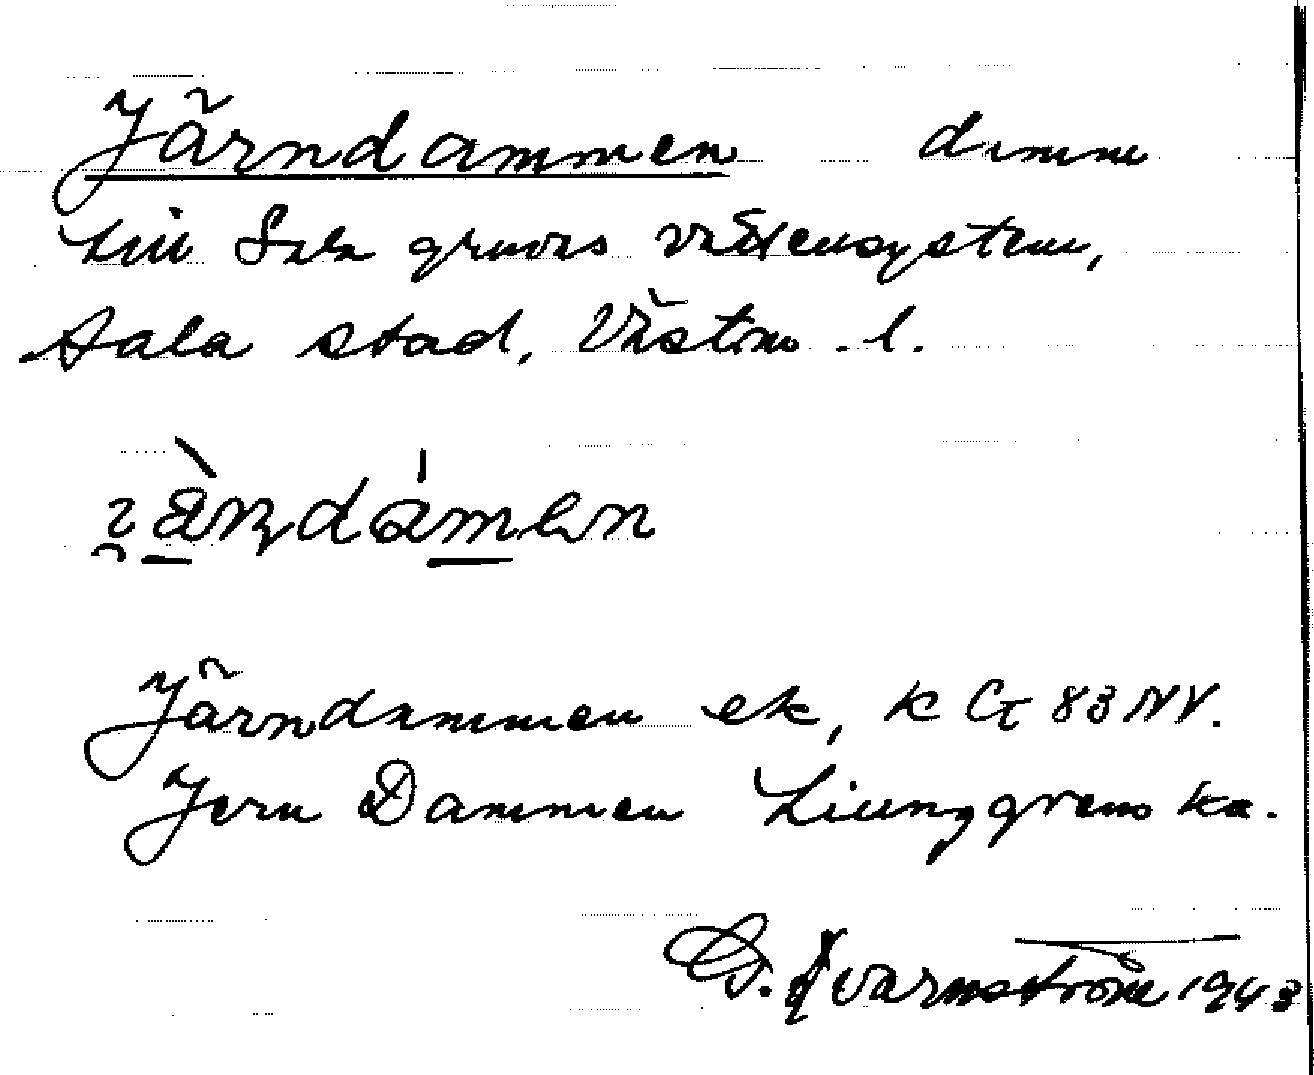 Järndammen damm
till Sala gruvas vattensystem,
Sala stad, Västm. l.
Järndammen ek, k G 83 NV.
Jern Dammen Liunggrens ka.
G. Qvarnström 1943